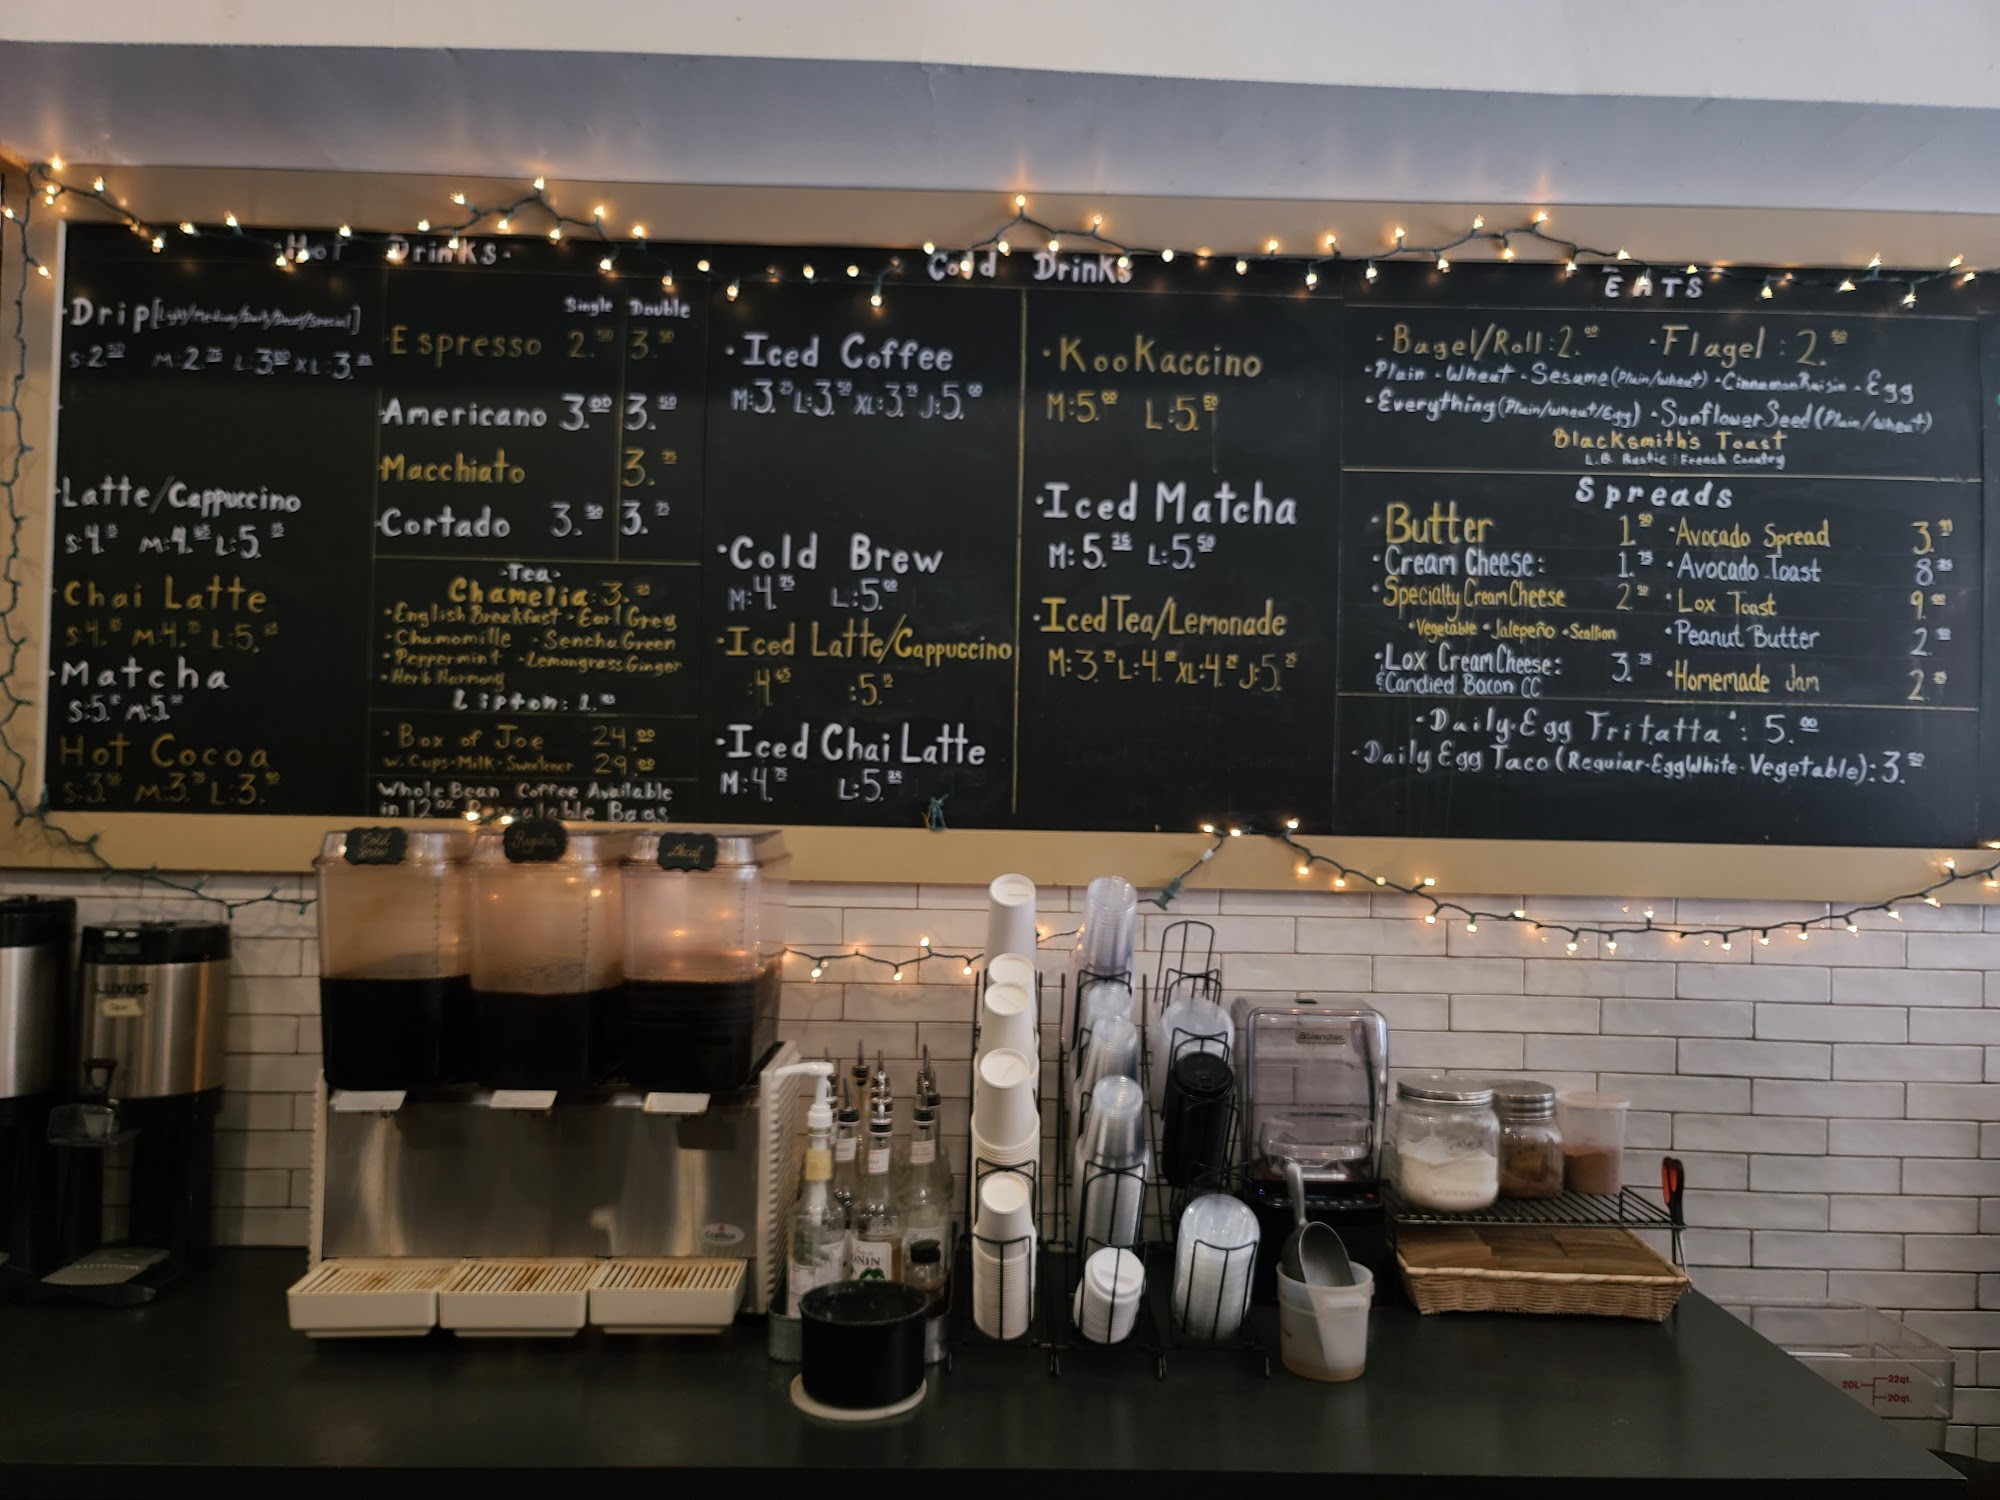 Hot Drinks
Drip[Light/Medium/Dark/Decaf/Special]
S:2.50 M:2.75 L:3.00 XL:3.25
Latte/Cappuccino
S:4. M:4. L:5.
Chai Latte
S:4. M:4. L:5.
Matcha
S:5. M:5.
Hot Cocoa
S:3. M:3. L:3.
Single Double
Espresso 2.50 3.50
Americano 3.00 3.50
Macchiato 3.75
Cortado 3.50 3.75
Tea
Chamelia: 3.
English Breakfast Earl Grey
Chamomille Sencha Green
Peppermint Lemongrass Ginger
Herb Harmony
Lipton: 1.
Box of Joe 24.00
w. Cups Milk Sweetener 29.00
Whole Bean Coffee Available
in 12oz Resealable Bags
Cold Drinks
Iced Coffee
M:3.25 L:3.50 XL:3.75 J:5.00
Cold Brew
M:4.25 L:5.00
Iced Latte/Cappuccino
:4.65 :5.15
Iced Chai Latte
M:4.75 L:5.25
KooKaccino
M:5.00 L:5.50
Iced Matcha
M:5.25 L:5.50
Iced Tea/Lemonade
M:3. L:4. XL:4. J:5.
EATS
Bagel/Roll:2.00 Flagel:2.50
Plain Wheat Sesame(Plain/wheat) Cinnamon Raisin Egg
Everything(Plain/wheat/Egg) Sunflower Seed(Plain/wheat)
Blacksmith's Toast
L.B. Rustic French Country
Spreads
Butter 1.50
Cream Cheese: 1.75
Specialty Cream Cheese 2.50
Vegetable Jalepeño Scallion
Lox Cream Cheese: 3.75
& Candied Bacon CC
Avocado Spread 3.
Avocado Toast 8.25
Lox Toast 9.
Peanut Butter 2.
Homemade Jam 2.
Daily Egg Fritatta: 5.00
Daily Egg Taco (Reguiar EggWhite Vegetable): 3.50
Cold Brew
Regular
Decaf
LUXUS
Blendtec
20L
22qt.
20qt.